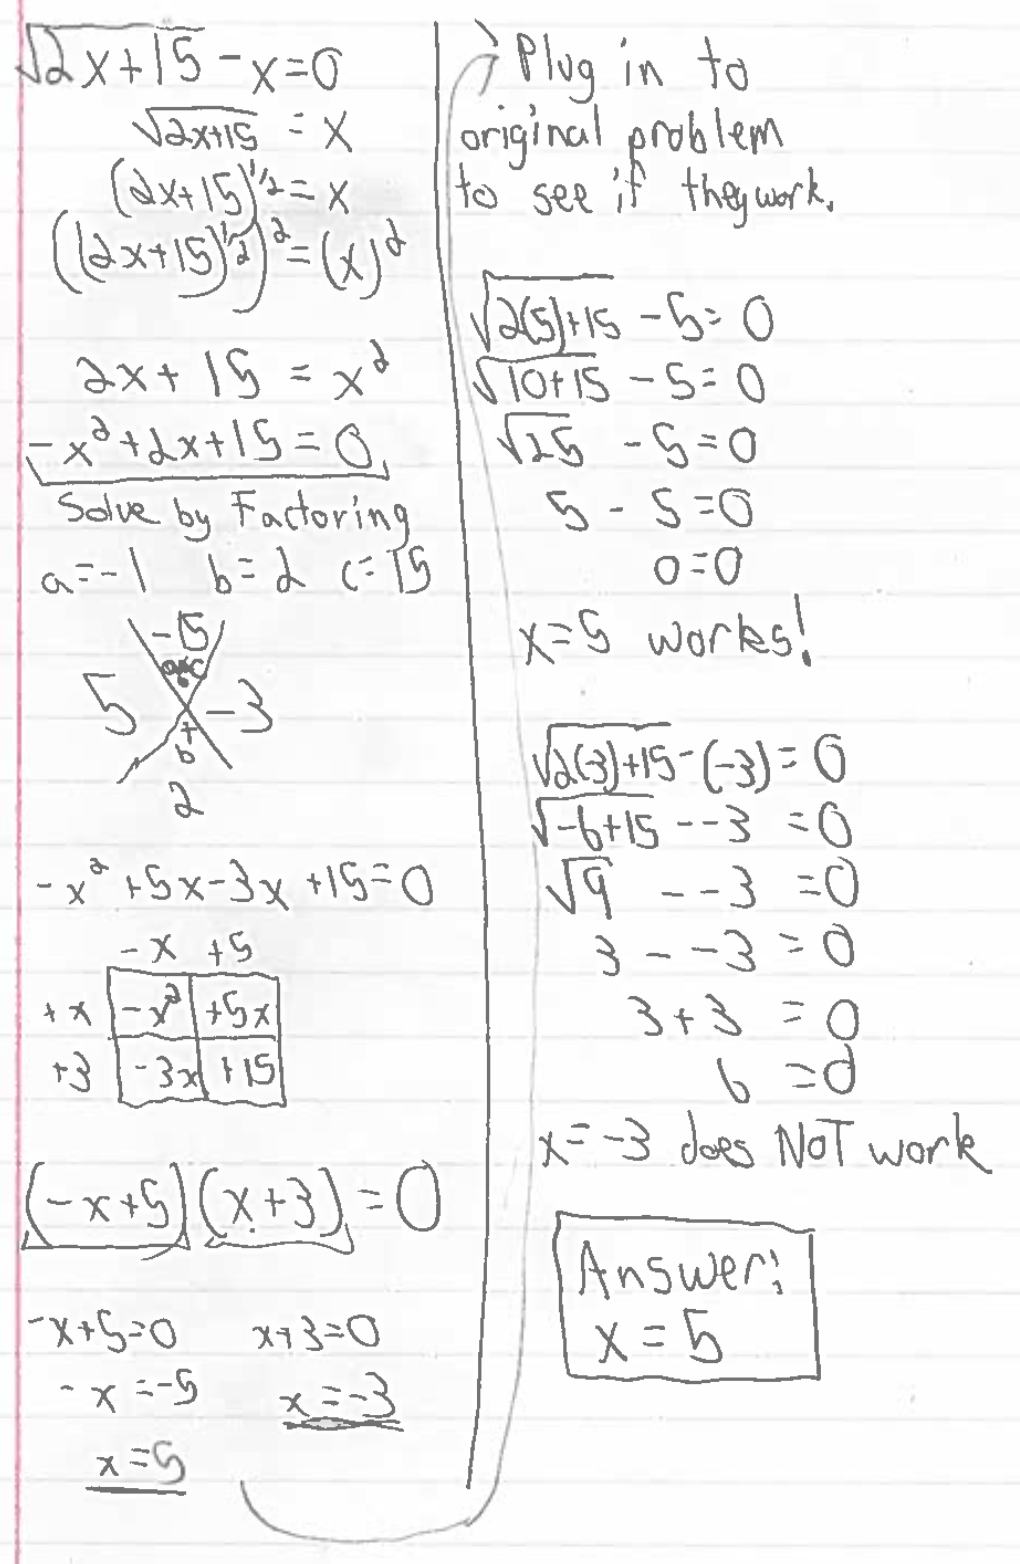 √2x+15 - x=0
√2x+15 = x
(2x+15)^1/2 = x
((2x+15)^1/2)^2 = (x)^2
2x + 15 = x^2
-x^2+2x+15=0
Solve by Factoring
a=-1 b=2 c=15
-15
a•c
5 -3
+
b
2
-x^2 +5x-3x +15=0
-x +5
+x -x^2 +5x
+3 -3x +15
(-x+5)(x+3) = 0
-x+5=0 x+3=0
-x=-5 x=-3
x=5
Plug in to
original problem
to see if they work.
√2(5)+15 - 5=0
√10+15 - 5=0
√25 - 5=0
5 - 5=0
0=0
x=5 works!
√2(-3)+15 -(-3)=0
√-6+15 --3 =0
√9 --3 =0
3 --3 =0
3+3 =0
6 =0
x=-3 does NOT work
Answer:
x=5